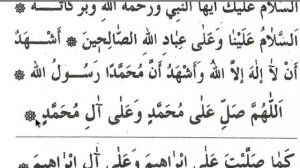 السَّلَامُ عَلَيْكَ أَيُّهَا النَّبِيُّ وَرَحْمَةُ اللهِ وَبَرَكَاتُهُ ۞
السَّلَامُ عَلَيْنَا وَعَلَى عِبَادِ اللهِ الصَّالِحِينَ ۞ أَشْهَدُ
أَنْ لَا إِلٰهَ إِلَّا اللهُ وَأَشْهَدُ أَنَّ مُحَمَّدًا رَسُولُ اللهِ ۞
اَللّٰهُمَّ صَلِّ عَلَى مُحَمَّدٍ وَعَلَى آلِ مُحَمَّدٍ ۞
كَمَا صَلَّيْتَ عَلَى إِبْرَاهِيمَ وَعَلَى آلِ إِبْرَاهِيمَ ۞